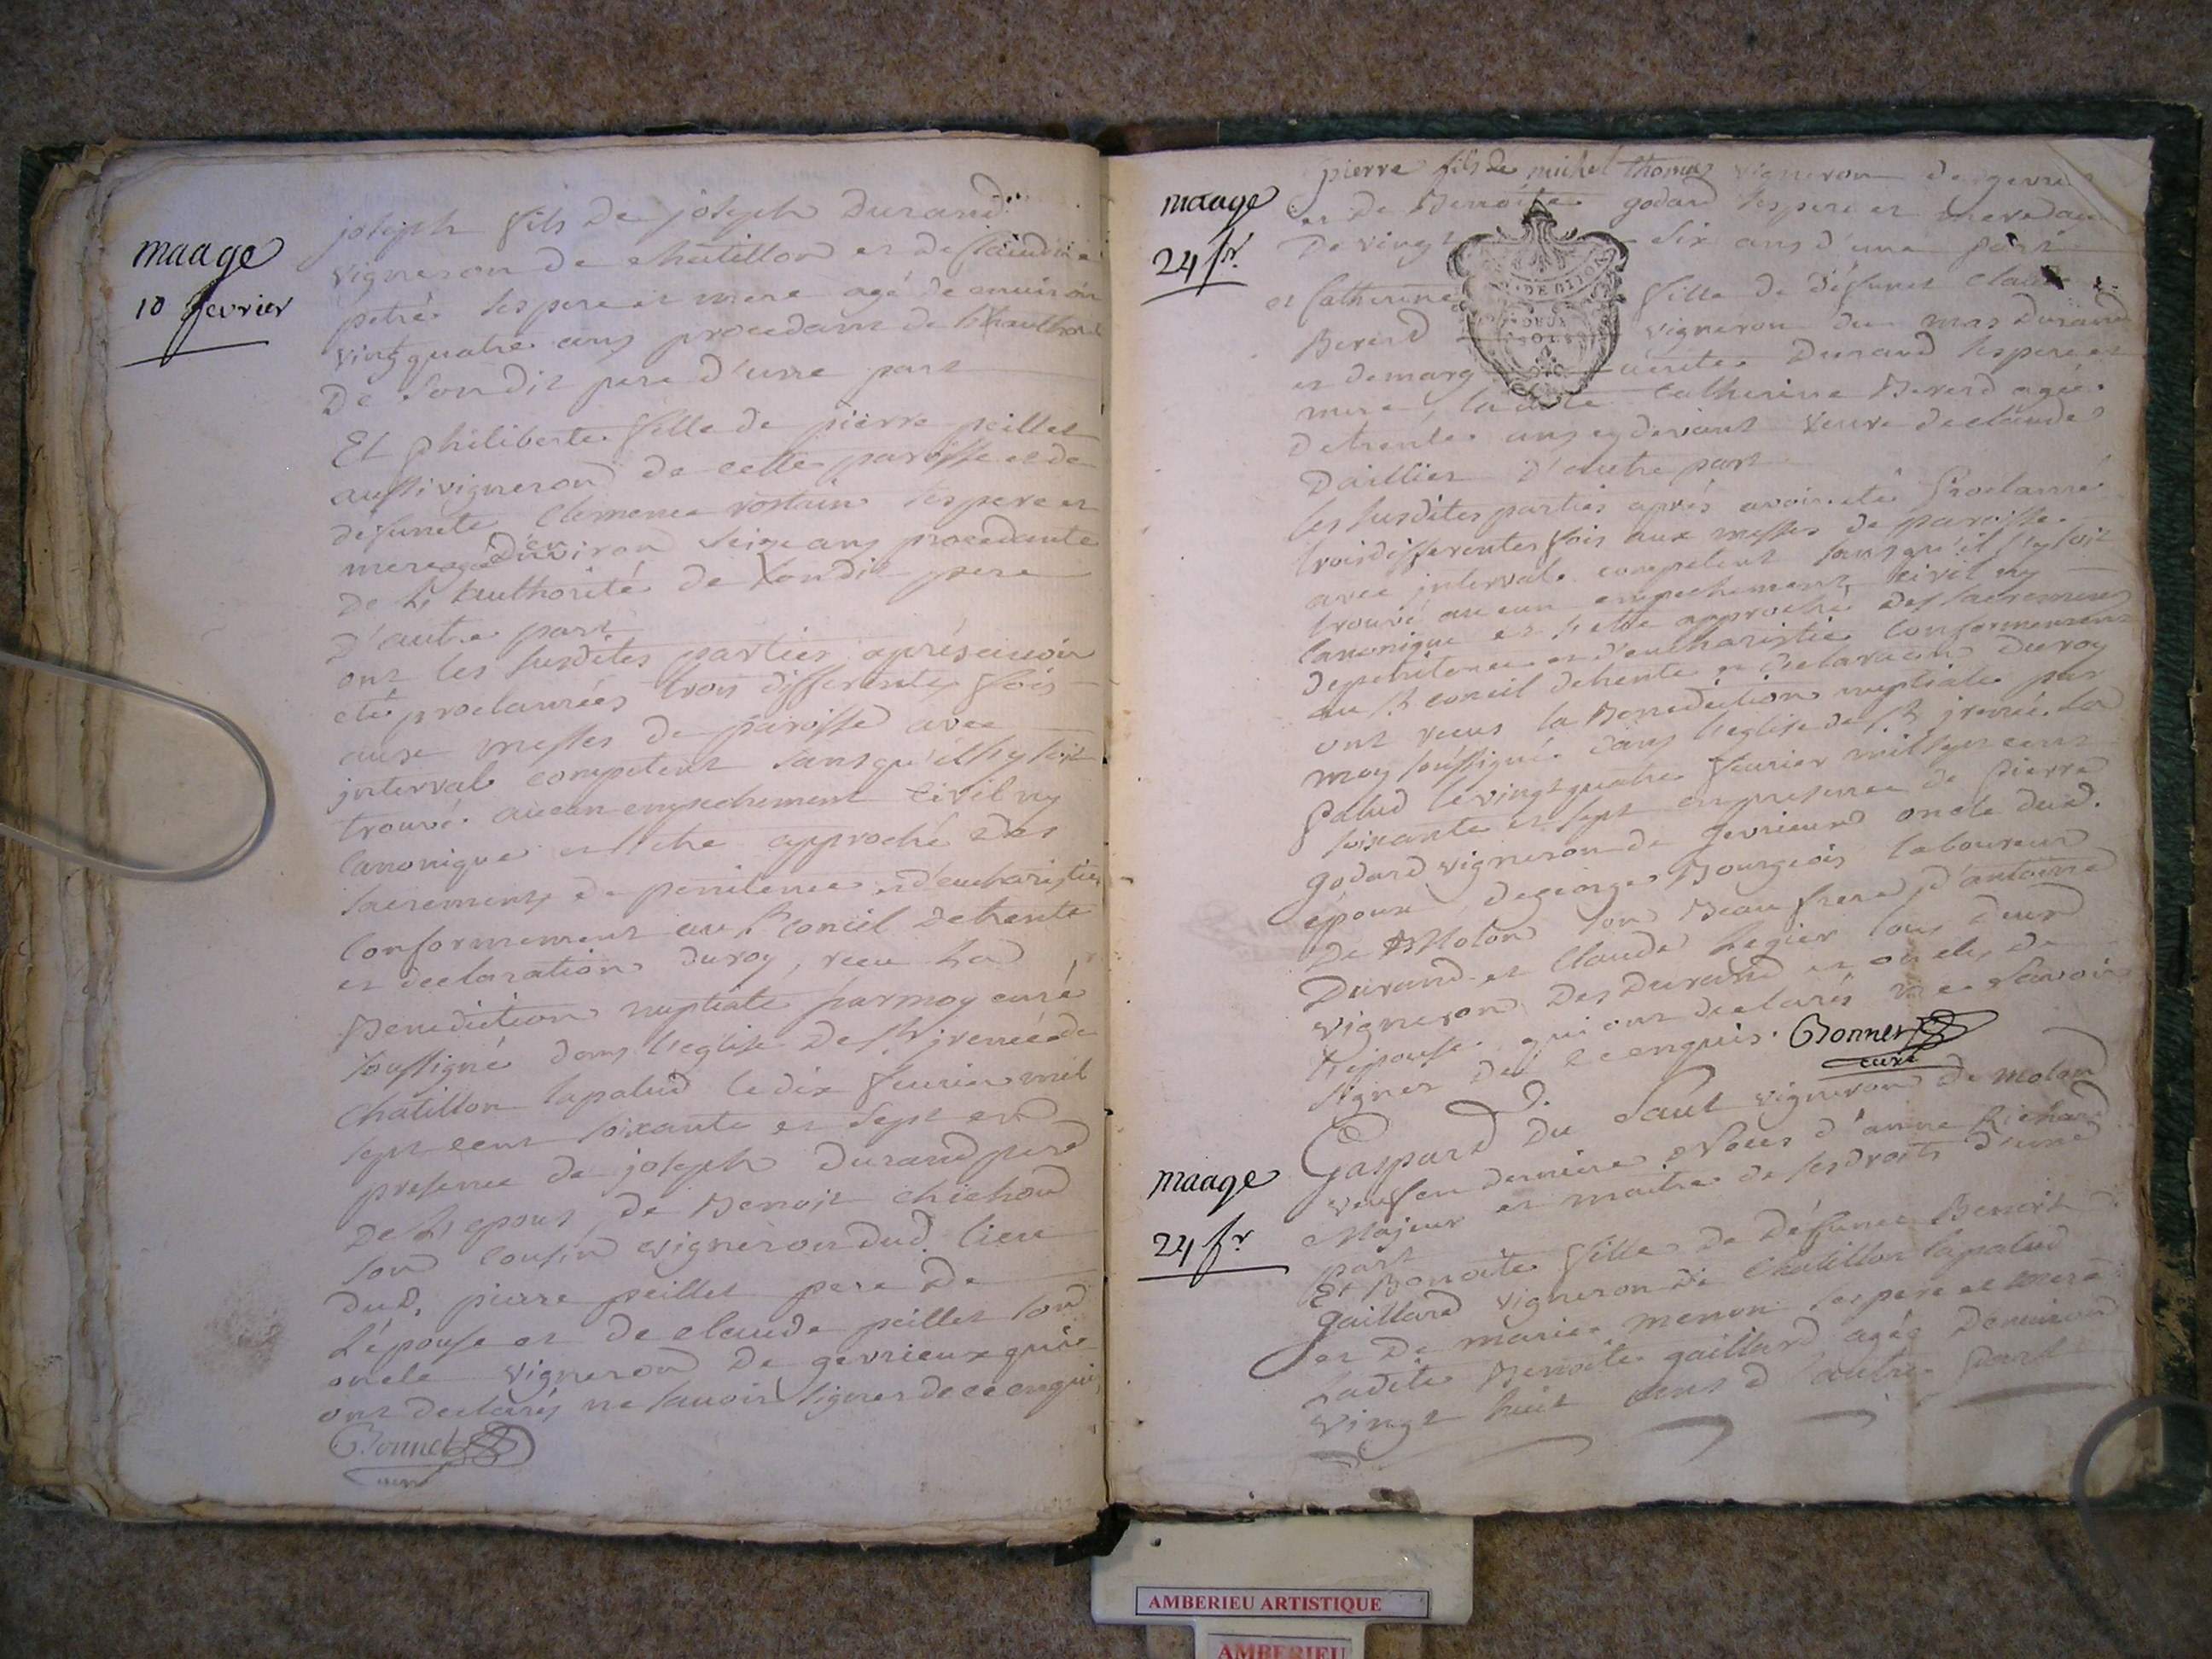 maage
10 fevrier
joseph fils de joseph Durand
vigneron de chatillon et de claudine
petré ses pere et mere agé de environ
vingt quatre ans procedant de l'hauthorité
de son dit pere d'une part
Et philiberte fille de pierre peillet
aussi vigneron de cette paroisse et de
defunete Clemence rostain ses pere et
mere agée d'environ seize ans procedante
de l'hauthorité de son dit pere
d'autre part
ont les susdites parties après avoir
eté proclamées trois differentes fois
aux messes de paroisse avec
interval competent sans qu'il s'y soit
trouvé aucun empechement civil ny
canonique et s'etre approché des
sacrements de penitence et d'eucharistie
conformement au St concil de trente
et declaration du roy, reçu la
Benediction nuptiale par moy curé
soussigné dans l'eglise de St jrenée de
chatillon lapalud le dix fevrier mil
sept cent soixante et sept en
presence de joseph Durand pere
de l'epoux, de Benoit chichon
son cousin vigneron dud. lieu
dud. pierre peillet pere de
l'épouse et de claude peillet son
oncle vigneron de gevrieux qui
ont declarés ne savoir signer de ce enquis
Bonnet
curé
maage
24 fr
pierre fils de michel thomas vigneron de gevrieux
et de Benoite godard ses pere et mere agé
De vingt six ans d'une part
et Catherine fille de défunct claude
Bererd vigneron du mas Durand
et de marguerite Durand ses pere et
mere, la dite Catherine Bererd agée
de trente ans cy devant veuve de claude
Daillier d'autre part
les susdites parties après avoir eté Proclamé
trois differentes fois aux messes de paroisse
avec interval competent sans qu'il s'y soit
trouvé aucun empechement civil ny
canonique et s'etre approché des sacrements
de penitence et d'eucharistie conformement
au St concil de trente et declaration du roy
ont reçus la Benediction nuptiale par
moy soussigné dans l'eglise de St jrenée la
Palud le vingt quatre fevrier mil sept cent
soixante et sept en presence de Pierre
Godard vigneron de Gevrieux oncle dud.
époux, de george Bourgeois laboureur
De Molon son Beau frere, d'antoine
Durand et claude Legier tous deux
vigneron des Durand et oncles de
l'épouse qui ont declarés ne savoir
signer de ce enquis. Bonnet
curé
maage
24 fr
Gaspard Du Saut vigneron de molon
veuf en derniere Noces d'anne Richard
Majeur et maitre de ses droits d'une
part
Et Benoite fille de Défunct Benoit
Gaillard vigneron de Chatillon lapalud
et De marie menon ses pere et mere
Ladite Benoite gaillard agée Denviron
vingt huit ans d'autre Part
AMBERIEU ARTISTIQUE
AMBERIEU